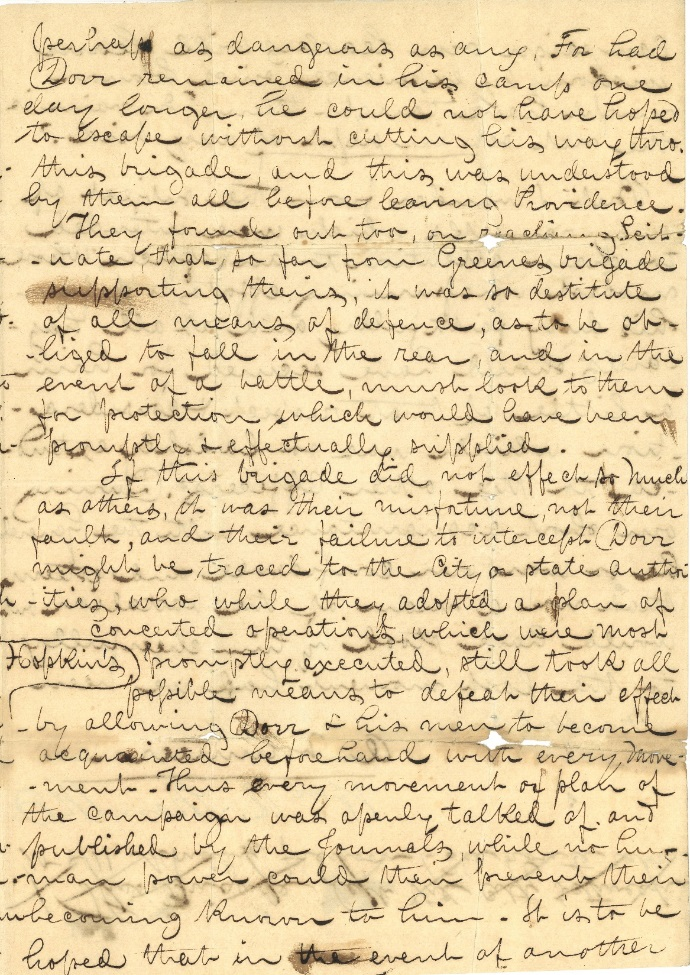 perhaps as dangerous as any. For had
Dorr remained in his camp one
day longer, he could not have hoped
to escape without cutting his way thro.
this brigade, and this was understood
by them all before leaving Providence.
They found out too, on reaching Scit-
-uate, that so far from Greenes brigade
supporting theirs, it was so destitute
of all means of defence, as to be ob-
-liged to fall in the rear, and in the
event of a battle, must look to them
for protection which would have been
promptly & effectually supplied.
If this brigade did not effect so much
as others, it was their misfortune, not their
fault, and their failure to intercept Dorr
might be traced to the City or state author
-ities, who while they adopted a plan of
concerted operations, which were most
Hopkin's promptly executed, still took all
possible means to defeat their effect
-by allowing Dorr & his men to become
acquainted beforehand with every move-
-ment - Thus every movement or plan of
the campaign was openly talked of and
published by the Journals, while no hu-
-man power could then prevent their
becoming known to him - It is to be
hoped that in the event of another